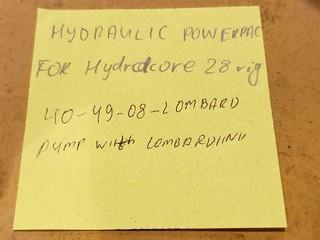 HYDRAULIC POWERPAC
FOR Hydracore 28 rig
40-49-08-LOMBARD
PUMP WITH LOMBARDINI